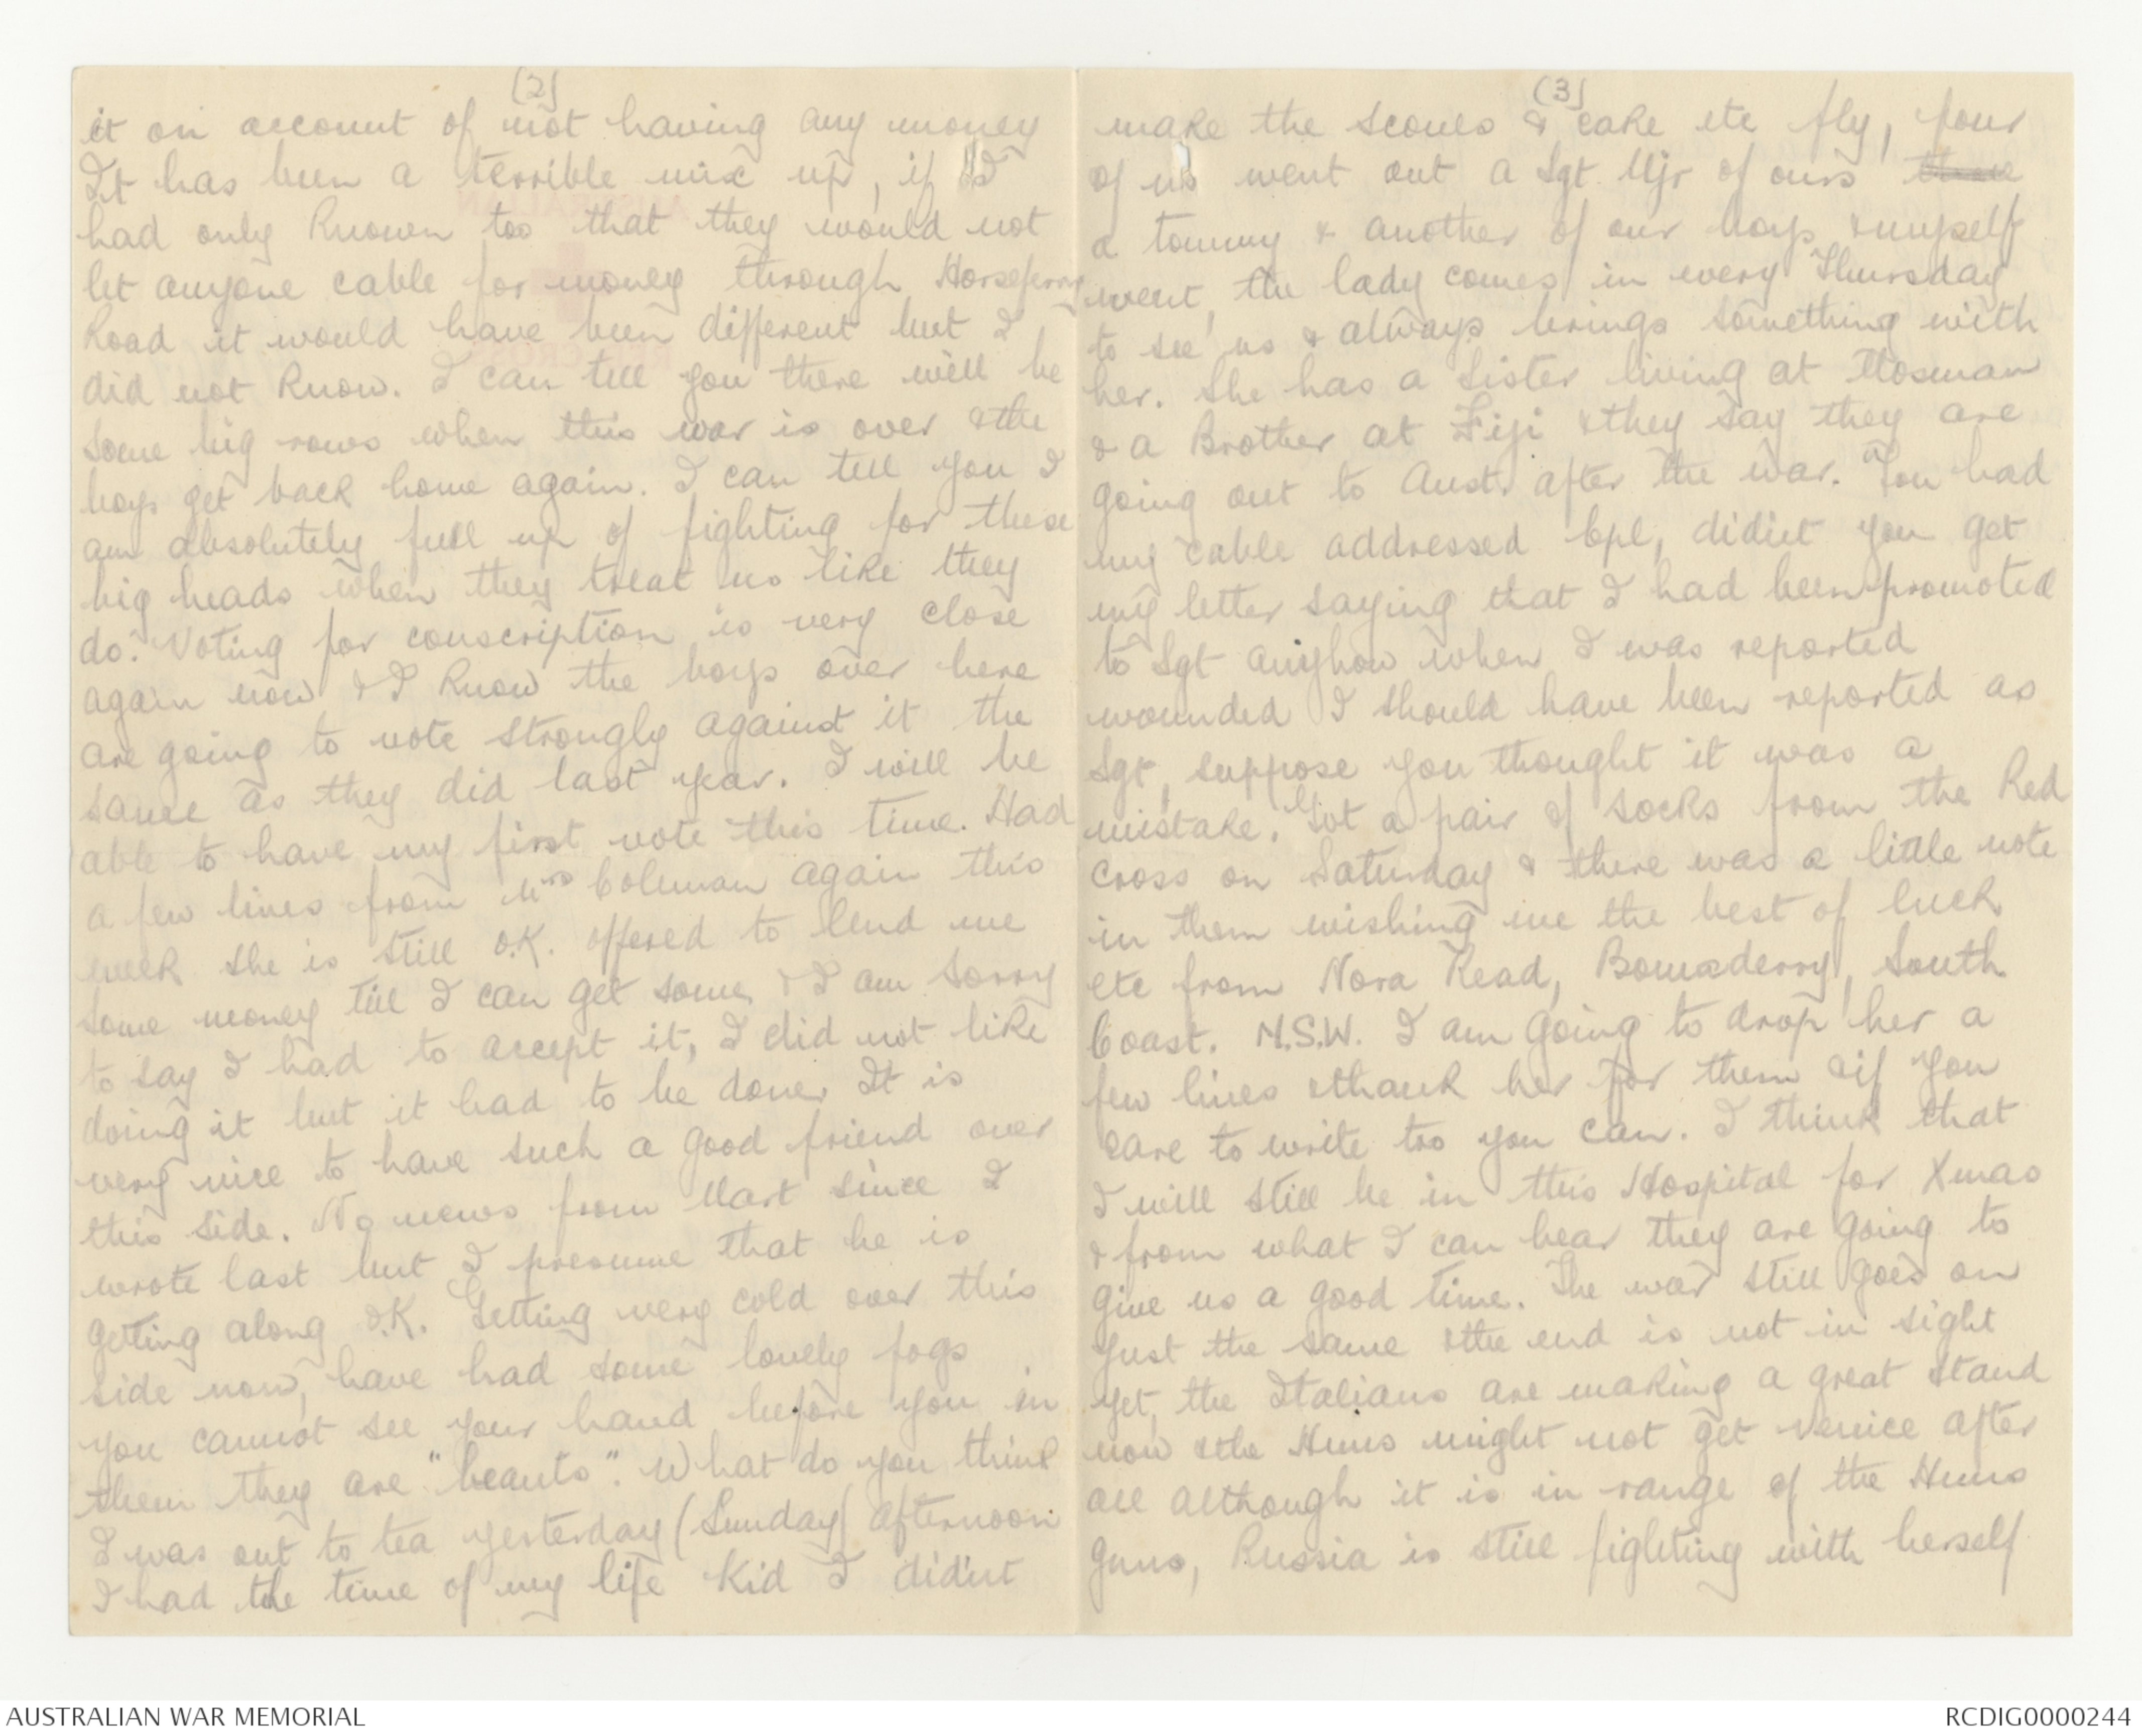 (2)
it on account of not having any money
It has been a terrible mix up, if I
had only known too that they would not
let anyone cable for money through Horseferry
Road it would have been different but I
did not know. I can tell you there will be
some big rows when this war is over & the
boys get back home again. I can tell you I
am absolutely full up of fighting for these
big heads when they treat us like they
do. Voting for conscription is very close
again now & I know the boys over here
are going to vote strongly against it the
same as they did last year. I will be
able to have my first vote this time. Had
a few lines from Mrs Coleman again this
week she is still O.K. offered to lend me
some money till I can get some, & I am sorry
to say I had to accept it, I did not like
doing it but it had to be done, It is
very nice to have such a good friend over
this side. No news from Mart since I
wrote last but I presume that he is
getting along O.K. Getting very cold over this
side now, have had some lovely fogs
you cannot see your hand before you in
them they are "beauts". What do you think
I was out to tea yesterday (Sunday) afternoon
I had the time of my life Kid I didn't
(3)
make the scones & cake etc fly, four
of us went out a Sgt. Mjr of ours
a tommy & another of our boys & myself
went, the lady comes in every Thursday
to see us & always brings something with
her. She has a sister living at Mosman
& a Brother at Fiji & they say they are
going out to Aust. after the war. You had
my cable addressed Cpl, didn't you get
my letter saying that I had been promoted
to Sgt anyhow when I was reported
wounded I should have been reported as
Sgt, suppose you thought it was a
mistake. Got a pair of socks from the Red
Cross on Saturday & there was a little note
in them wishing me the best of luck
etc from Nora Read, Bomaderry, South
Coast. N.S.W. I am going to drop her a
few lines & thank her for them & if you
care to write too you can. I think that
I will still be in this Hospital for Xmas
& from what I can hear they are going to
give us a good time. The war still goes on
just the same & the end is not in sight
yet, the Italians are making a great stand
now & the Huns might not get Venice after
all although it is in range of the Huns
guns, Russia is still fighting with herself
AUSTRALIAN WAR MEMORIAL
RCDIG0000244